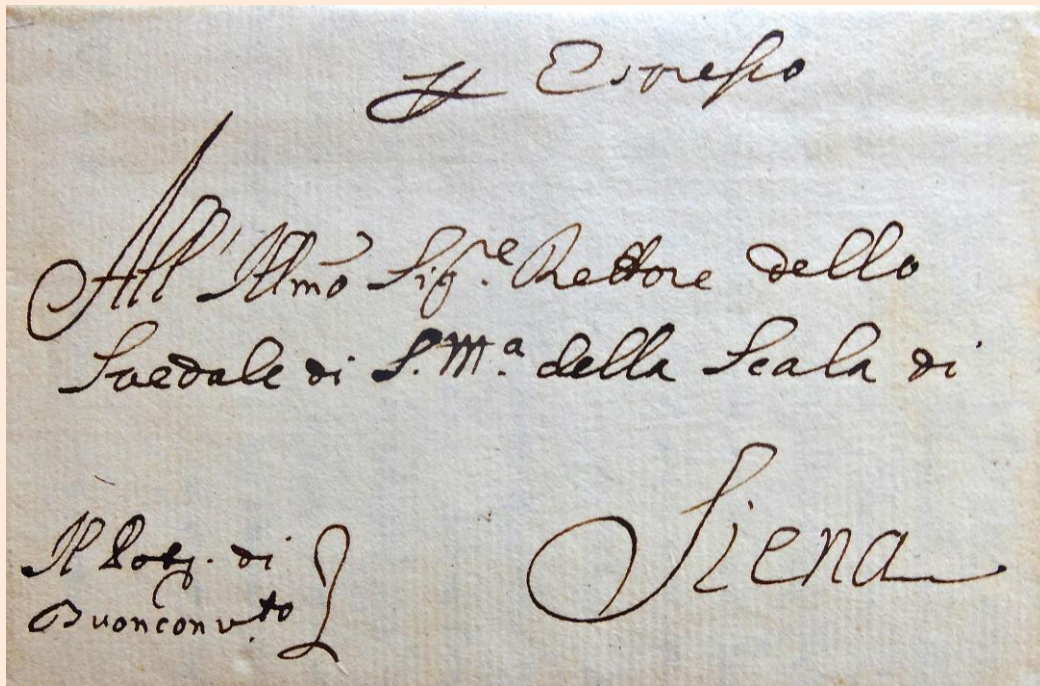 Espresso
All' Illmo Sig.re Rettore dello
Spedale di S. Ma. della Scala di
Siena
Il di
Buonconv.to